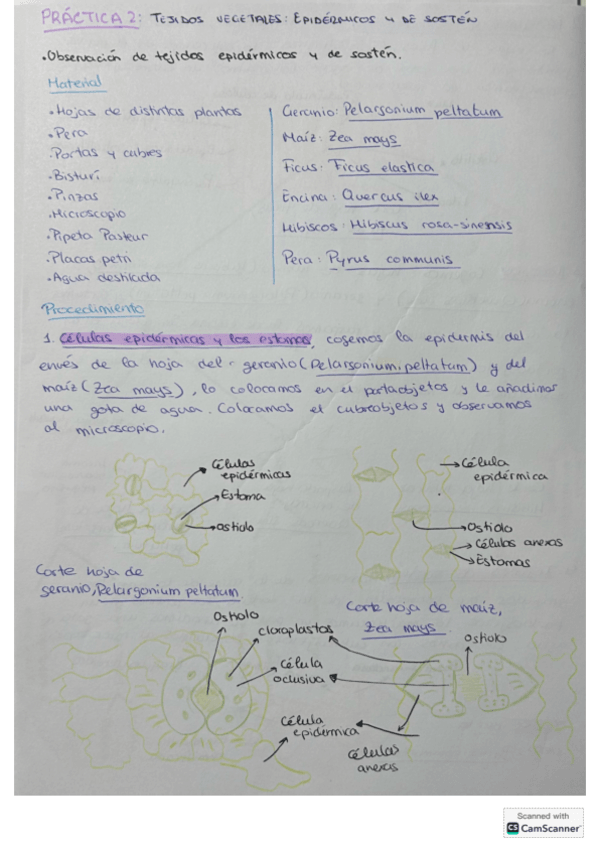 PRÁCTICA 2: TEJIDOS VEGETALES: EPIDÉRMICOS Y DE SOSTÉN
• Observación de tejidos epidérmicos y de sostén.
Material
• Hojas de distintas plantas
• Pera
• Portas y cubres
• Bisturí
• Pinzas
• Microscopio
• Pipeta Pasteur
• Placas petri
• Agua destilada
Geranio: Pelargonium peltatum
Maíz: Zea mays
Ficus: Ficus elastica
Encina: Quercus ilex
Hibiscos: Hibiscus rosa-sinensis
Pera: Pyrus communis
Procedimiento
1. Células epidérmicas y los estomas, cogemos la epidermis del
envés de la hoja del geranio (Pelargonium peltatum) y del
maíz (Zea mays), lo colocamos en el portaobjetos y le añadimos
una gota de agua. Colocamos el cubreobjetos y observamos
al microscopio.
Células
epidérmicas
Estoma
ostiolo
Célula
epidérmica
Ostiolo
Células anexas
Estomas
Corte hoja de
geranio, Pelargonium peltatum
Corte hoja de maíz,
Zea mays.
Ostiolo
cloroplastos
Célula
oclusiva
Célula
epidérmica
ostiolo
Células
anexas
Scanned with
CS CamScanner